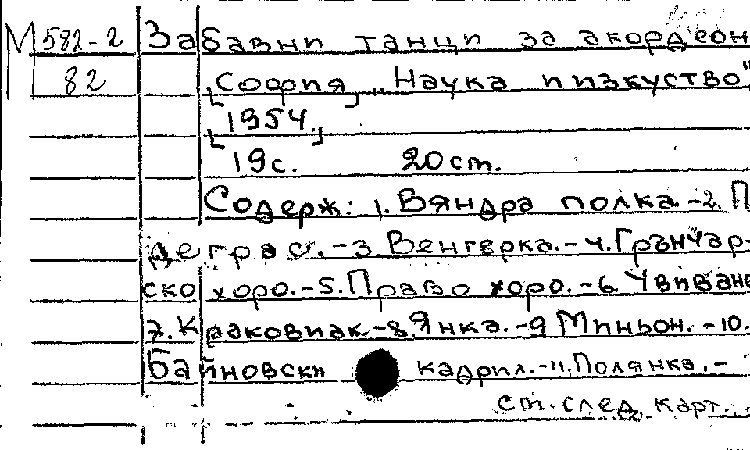 М 582-2 Забавни танци за акордеон
82 [София], „Наука и изкуство",
[1954]
19с. 20 cm.
Содерж: 1. Вяндра полка.-2. П
де грас.-3. Венгерка.-4. Гранчар-
ско хоро.-5. Право хоро.-6.
7. Краковиак.-8. Янка.-9 Миньон.-10.
Байновски кадрил.-11. Полянка.-
см. след. карт.